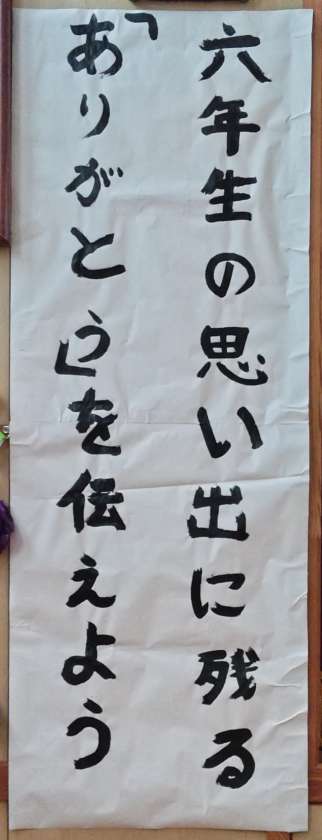 六年生の思い出に残る
「ありがとう」を伝えよう